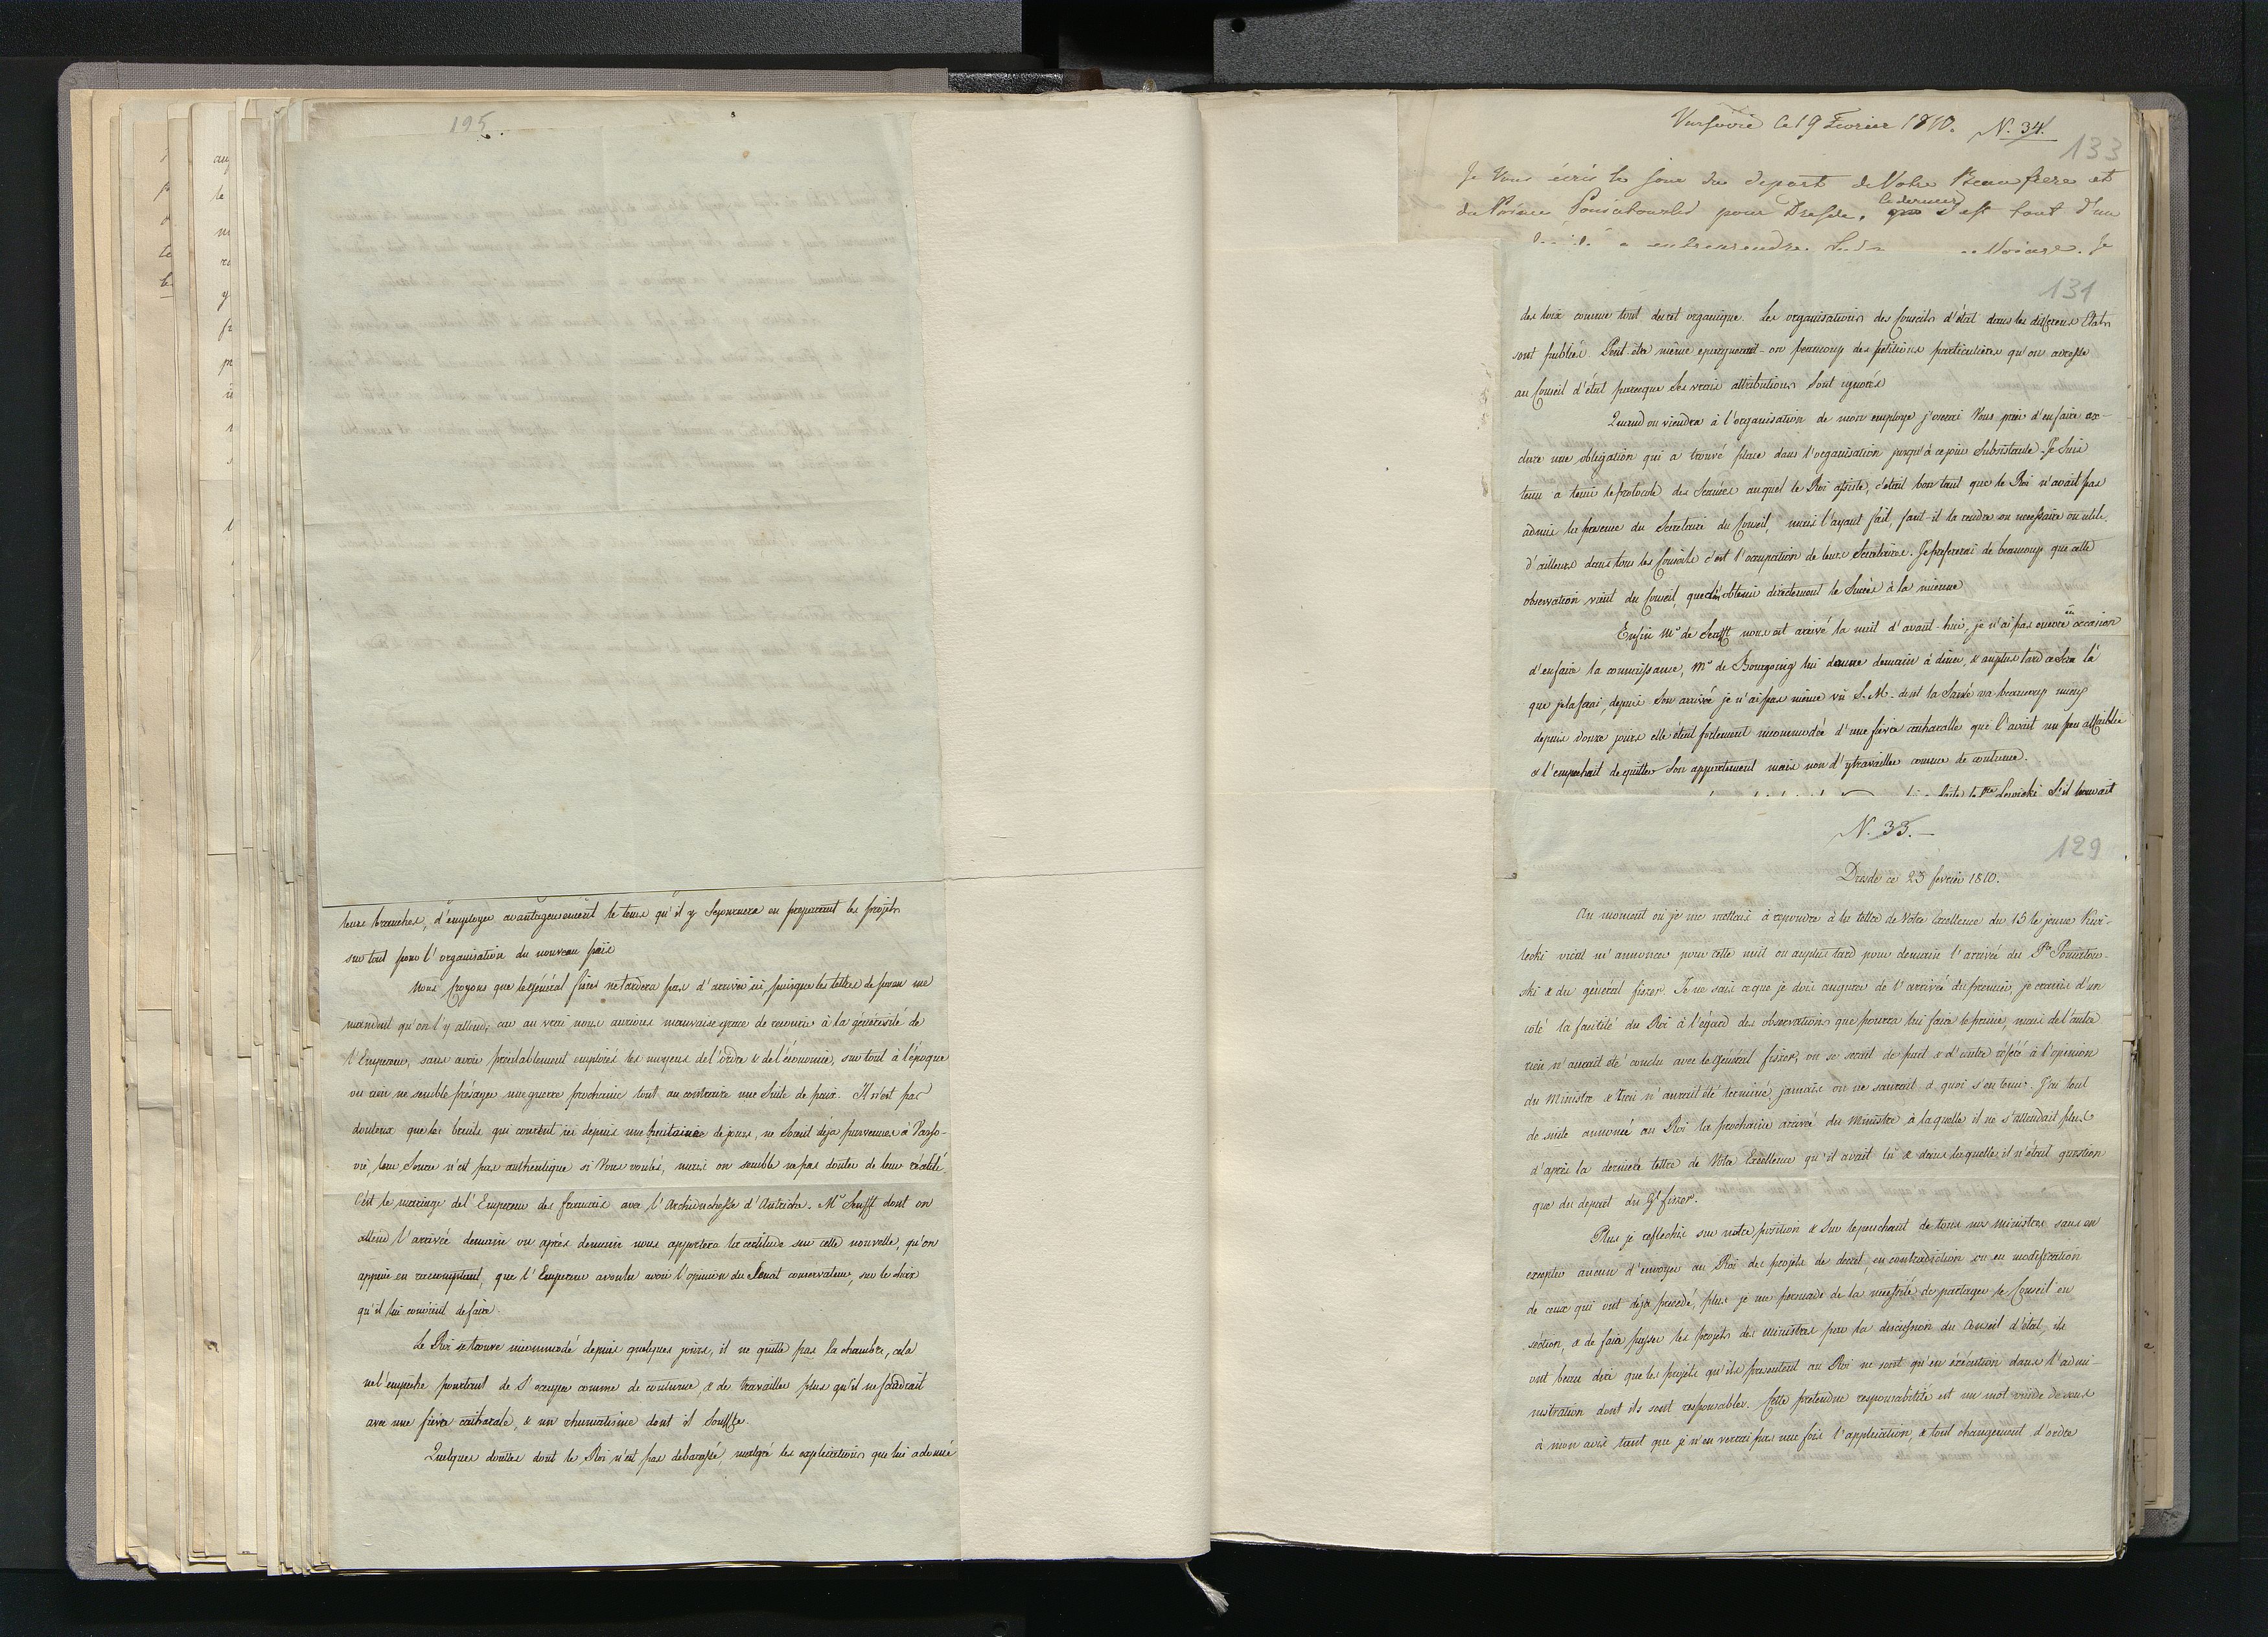 195.
leurs branches, d'employer avantageusement le tems qu'il y sejournera en preparant les projets
sur tout pour l'organisation du nouveau païs
Nous croyons que le général fiszer ne tardera pas d'arriver ici, puisque les lettres de paris me
mandent qu'on l'y attend; car au vrai nous aurions mauvaise grace de recourir à la générosité de
l'Empereur, sans avoir prealablement emploiés les moyens de l'ordre & de l'économie, sur tout à l'époque
ou rien ne semble présager une guerre prochaine tout au contraire une suite de paix. Il n'est pas
douteux que les bruits qui courent ici depuis une huitaine de jours, ne soient deja parvenues à Varso-
vie, leur source n'est pas authentique si Vous voulés, mais on semble ne pas douter de leur réalité.
C'est le mariage de l'Empereur des francais avec l'Archiduchesse d'Autriche. Mr Senfft dont on
attend l'arrivée demain ou après demain nous apportera la certitude sur cette nouvelle, qu'on
appuie en racomptant, que l'Empereur a voulu avoir l'opinion du Senat conservateur, sur le choix
qu'il lui convient de faire.
Le Roi se trouve incommodé depuis quelques jours, il ne quitte pas la chambre, cela
ne l'empeche pourtant de s'occuper comme de coutume, & de travailler plus qu'il ne faudrait
avec une fièvre catharale, & un rhumatisme dont il souffre.
Quelques doutes dont le Roi n'est pas debarassé, malgré les explications que lui a donné
Varsovie ce 19 Fevrier 1810. N. 34.
133
Je Vous écris le jour du depart de Votre Beaufrere et
du Prince Poniatowski pour Dresde, le dernier s'est tout d'un
a entreprendre. Je
131
des loix comme tout decret organique. Les organisations des Conseils d'état dans les differens Etats
sont publiés. Peut-etre même epargnerait-on beaucoup des petitions particulières qu'on adresse
au Conseil d'état parceque ses vrais attributions sont ignorés
Quand on viendra à l'organisation de mon employe j'oserai Vous prier d'en faire ex-
clure une obligation qui a trouvé place dans l'organisation jusqu'à ce jour subsistante. Je suis
tenu a tenir le protocole des Seances auquel le Roi assiste, c'etait bon tant que le Roi n'avait pas
admis la presence du Secretaire du Conseil, mais l'ayant fait, faut-il la rendre ou necessaire ou utile,
d'ailleurs dans tous les Conseils c'est l'occupation de leurs Secretaires. Je prefererai de beaucoup que cette
observation vient du Conseil, que d'en obtenir directement le Succès à la mienne
Enfin Mr de Senfft nous est arrivé la nuit d'avant-hier, je n'ai pas encore eu occasion
d'en faire la connaissance, Mr de Bourgoing lui donne demain à diner, & au plus tard ce sera là
que je la ferai, depuis son arrivée je n'ai pas même vû S. M. dont la Santé va beaucoup mieux
depuis douze jours elle était fortement incommodée d'une fievre catharalle qui l'avait un peu affaiblie
& l'empechait de quitter son appartement mais non d'y travailler comme de coutume.
S'il trouvait
N. 33.
129
Dresde ce 23 fevrier 1810.
Au moment ou je me mettais à repondre à la lettre de Votre Excellence du 15 le jeune Kwi-
lecki vient m'annoncer pour cette nuit ou au plus tard pour demain l'arrivée du Pce Poniatow-
ski & du général fiszer. Je ne sais ce que je dois augurer de l'arrivée du premier, je crains d'un
coté la facilité du Roi à l'égard des observations que pourra lui faire le prince, mais de l'autre
rien n'aurait été conclu avec le général fiszer, on se serait de part & d'autre référé à l'opinion
du Ministre & rien n'aurait été terminé, jamais on ne saurait à quoi s'en tenir. J'ai tout
de suite annoncé au Roi la prochaine arrivée du Ministre à laquelle il ne s'attendait plus
d'après la derniere lettre de Votre Excellence qu'il avait lû & dans laquelle il n'était question
que du depart du Gl fiszer.
Plus je reflechis sur notre position & sur le penchant de tous nos Ministres sans en
excepter aucun d'envoyer au Roi des projets de decret, en contradiction ou en modification
de ceux qui ont déja precedé, plus je me persuade de la necessité de partager le Conseil en
séction, & de faire passer les projets des Ministres par la discussion du Conseil d'état, ils
ont beau dire que les projets qu'ils presentent au Roi ne sont qu'en éxécution dans l'admi-
nistration dont ils sont responsables. Cette pretendue responsabilité est un mot vuide de sens
à mon avis tant que je n'en verrai pas une fois l'application, & tout changement d'ordre